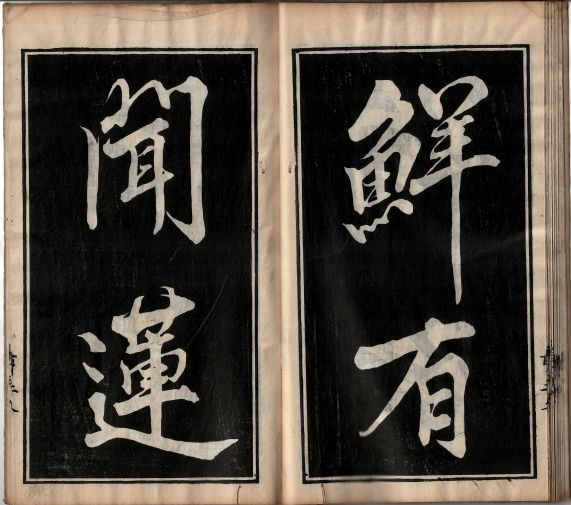 鮮有
聞蓮